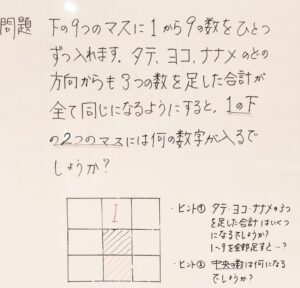 問題
下の9つのマスに1から9の数をひとつ
ずつ入れます。タテ、ヨコ、ナナメのどの
方向からも3つの数を足した合計が
全て同じになるようにすると、1の下
の2つのマスには何の数字が入るで
しょうか？
1
・ヒント① タテ・ヨコ・ナナメの3つ
を足した合計はいくつ
になるでしょうか？
1〜9を全部足すと…？
・ヒント② 中央の数は何になる
でしょうか？